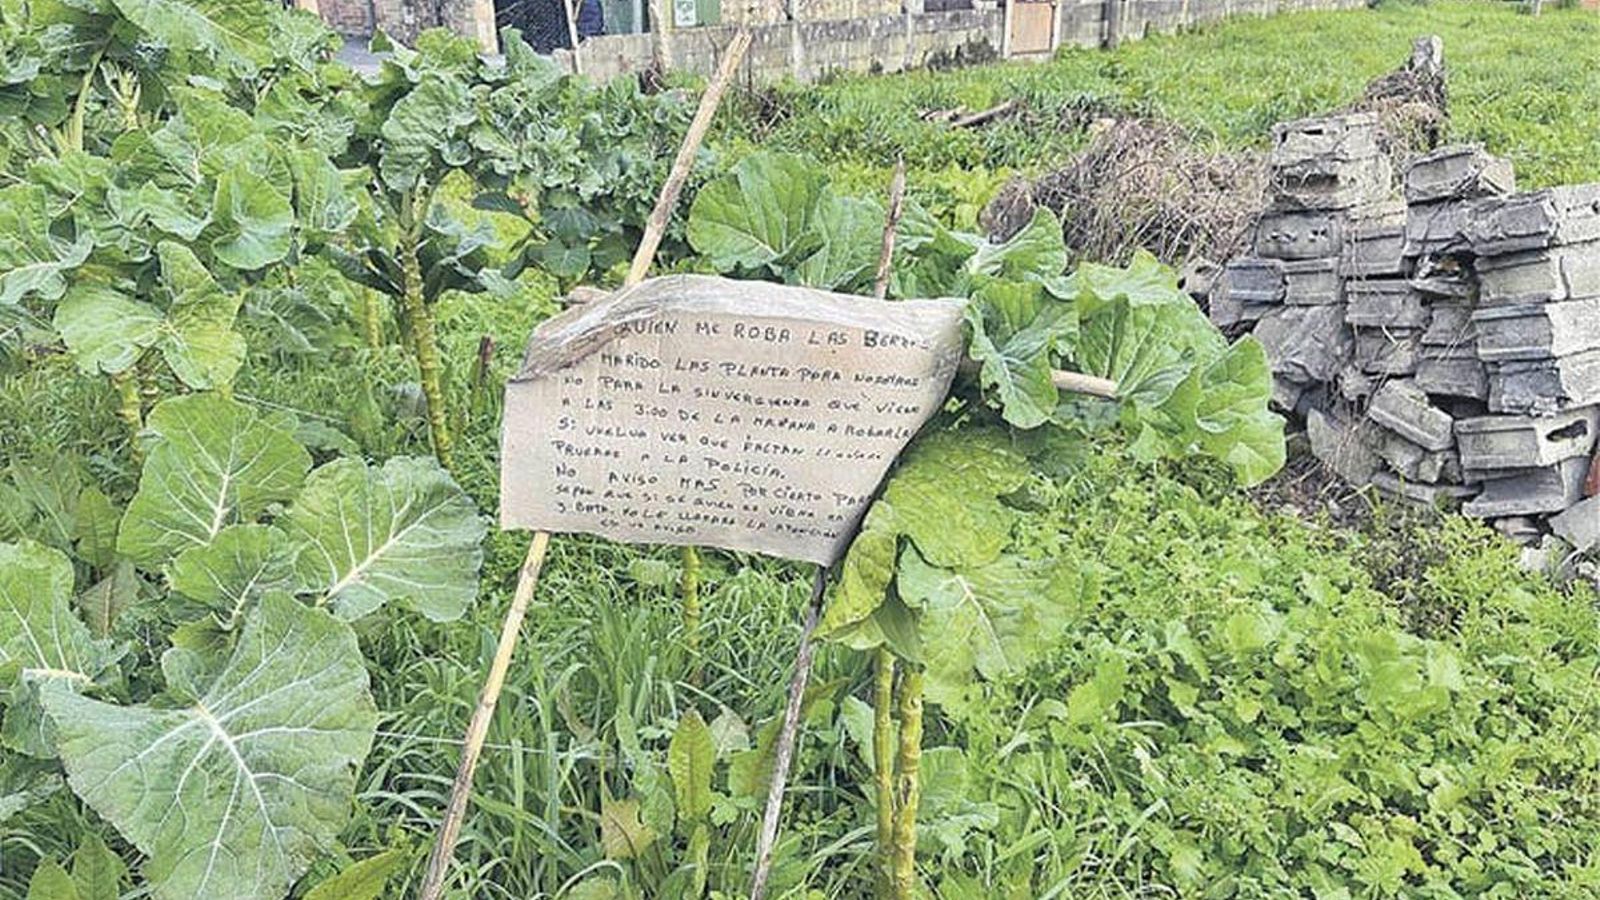 QUIEN ME ROBA LAS BERZAS
MARIDO LAS PLANTA PARA NOSOTROS
NO PARA LA SINVERGUENZA QUE VIENE
A LAS 3:00 DE LA MAÑANA A ROBARLAS
SI VUELVO VER QUE FALTAN
A LA POLICÍA.
NO AVISO MAS POR CIERTO PARA
SEPAN QUE SI SE QUIEN ES VIENE EN
LE LLAMARA LA ATENCION
ES UN AVISO